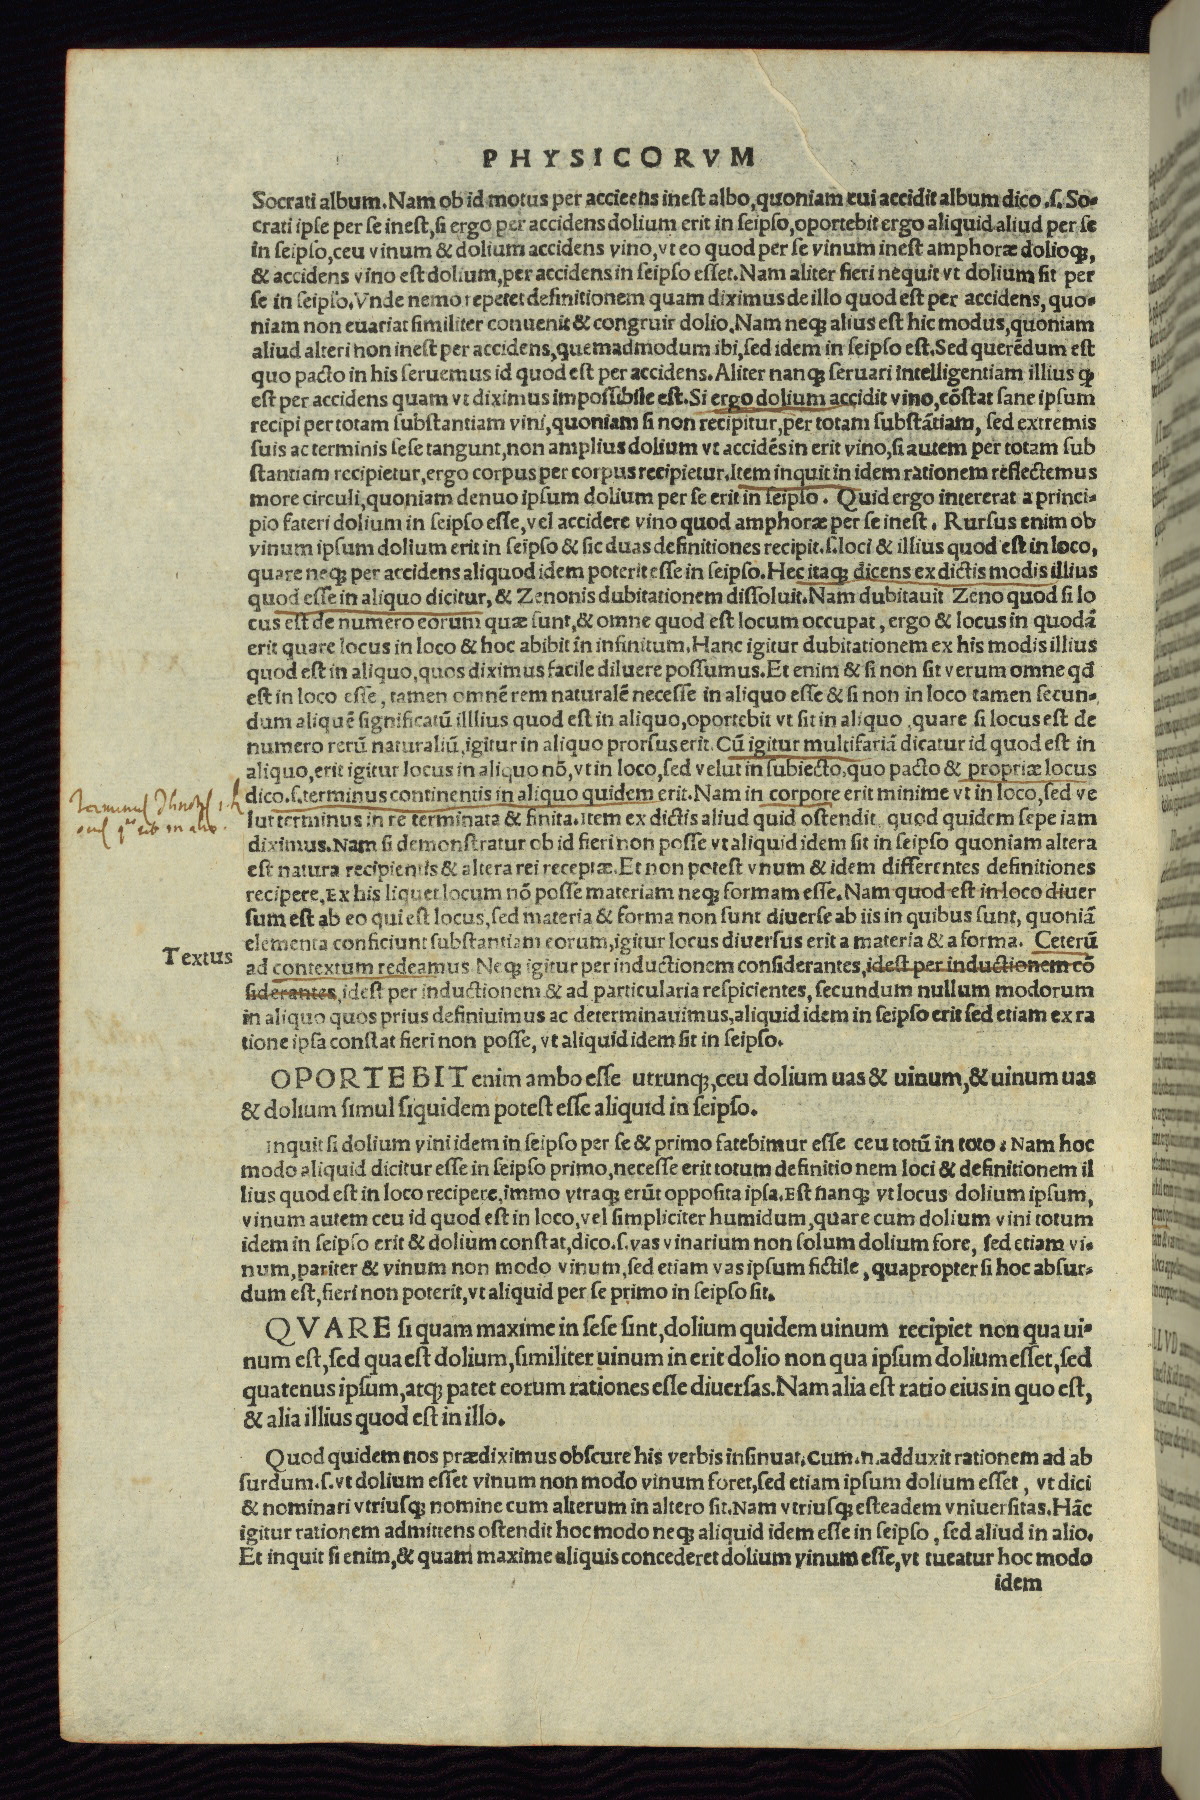 PHYSICORVM
Socrati album. Nam ob id motus per accicens inest albo, quoniam cui accidit album dico .s. So-
crati ipse per se inest, si ergo per accidens dolium erit in seipso, oportebit ergo aliquid aliud per se
in seipso, ceu vinum & dolium accidens vino, vt eo quod per se vinum inest amphoræ dolioq;,
& accidens vino est dolium, per accidens in seipso esset. Nam aliter fieri nequit vt dolium sit per
se in seipso. Vnde nemo repetet definitionem quam diximus de illo quod est per accidens, quo-
niam non euariat similiter conuenit & congruit dolio. Nam neq; alius est hic modus, quoniam
aliud alteri non inest per accidens, quemadmodum ibi, sed idem in seipso est. Sed querẽdum est
quo pacto in his seruemus id quod est per accidens. Aliter nanq; seruari intelligentiam illius ꝙ
est per accidens quam vt diximus impossibile est. Si ergo dolium accidit vino, cõstat sane ipsum
recipi per totam substantiam vini, quoniam si non recipitur, per totam substãtiam, sed extremis
suis ac terminis sese tangunt, non amplius dolium vt accidẽs in erit vino, si autem per totam sub
stantiam recipietur, ergo corpus per corpus recipietur. Item inquit in idem rationem reflectemus
more circuli, quoniam denuo ipsum dolium per se erit in seipso. Quid ergo intererat a princi-
pio fateri dolium in seipso esse, vel accidere vino quod amphoræ per se inest. Rursus enim ob
vinum ipsum dolium erit in seipso & sic duas definitiones recipit .s. loci & illius quod est in loco,
quare neq; per accidens aliquod idem poterit esse in seipso. Hec itaq; dicens ex dictis modis illius
quod esse in aliquo dicitur, & Zenonis dubitationem dissoluit. Nam dubitauit Zeno quod si lo
cus est de numero eorum quæ sunt, & omne quod est locum occupat, ergo & locus in quodã
erit quare locus in loco & hoc abibit in infinitum. Hanc igitur dubitationem ex his modis illius
quod est in aliquo, quos diximus facile diluere possumus. Et enim & si non sit verum omne qđ
est in loco esse, tamen omnẽ rem naturalẽ necesse in aliquo esse & si non in loco tamen secun-
dum aliquẽ significatũ illlius quod est in aliquo, oportebit vt sit in aliquo, quare si locus est de
numero rerũ naturaliũ, igitur in aliquo prorsus erit. Cũ igitur multifariã dicatur id quod est in
aliquo, erit igitur locus in aliquo nõ, vt in loco, sed velut in subiecto, quo pacto & propriæ locus
dico .s. terminus continentis in aliquo quidem erit. Nam in corpore erit minime vt in loco, sed ve
lut terminus in re terminata & finita. Item ex dictis aliud quid ostendit, quod quidem sepe iam
diximus. Nam si demonstratur ob id fieri non posse vt aliquid idem sit in seipso quoniam altera
est natura recipientis & altera rei receptæ. Et non potest vnum & idem differentes definitiones
recipere. Ex his liquet locum nõ posse materiam neq; formam esse. Nam quod est in loco diuer
sum est ab eo qui est locus, sed materia & forma non sunt diuerse ab iis in quibus sunt, quoniã
elementa conficiunt substantiam eorum, igitur locus diuersus erit a materia & a forma. Ceterũ
Textus
ad contextum redeamus Neq; igitur per inductionem considerantes, idest per inductionem cõ
siderantes, idest per inductionem & ad particularia respicientes, secundum nullum modorum
in aliquo quos prius definiuimus ac determinauimus, aliquid idem in seipso erit sed etiam ex ra
tione ipsa constat fieri non posse, vt aliquid idem sit in seipso.
OPORTEBIT enim ambo esse utrunq;, ceu dolium uas & uinum, & uinum uas
& dolium simul siquidem potest esse aliquid in seipso.
Inquit si dolium vini idem in seipso per se & primo fatebimur esse ceu totũ in toto. Nam hoc
modo aliquid dicitur esse in seipso primo, necesse erit totum definitio nem loci & definitionem il
lius quod est in loco recipere, immo vtraq; erũt opposita ipsa. Est nanq; vt locus dolium ipsum,
vinum autem ceu id quod est in loco, vel simpliciter humidum, quare cum dolium vini totum
idem in seipso erit & dolium constat, dico .s. vas vinarium non solum dolium fore, sed etiam vi-
num, pariter & vinum non modo vinum, sed etiam vas ipsum fictile, quapropter si hoc absur-
dum est, fieri non poterit, vt aliquid per se primo in seipso sit.
QVARE si quam maxime in sese sint, dolium quidem uinum recipiet non qua ui-
num est, sed qua est dolium, similiter uinum in erit dolio non qua ipsum dolium esset, sed
quatenus ipsum, atq; patet eorum rationes esse diuersas. Nam alia est ratio eius in quo est,
& alia illius quod est in illo.
Quod quidem nos prædiximus obscure his verbis insinuat. Cum .n. adduxit rationem ad ab
surdum .s. vt dolium esset vinum non modo vinum foret, sed etiam ipsum dolium esset, vt dici
& nominari vtriusq; nomine cum alterum in altero sit. Nam vtriusq; est eadem vniuersitas. Hãc
igitur rationem admittens ostendit hoc modo neq; aliquid idem esse in seipso, sed aliud in alio.
Et inquit si enim, & quam maxime aliquis concederet dolium vinum esse, vt tueatur hoc modo
idem